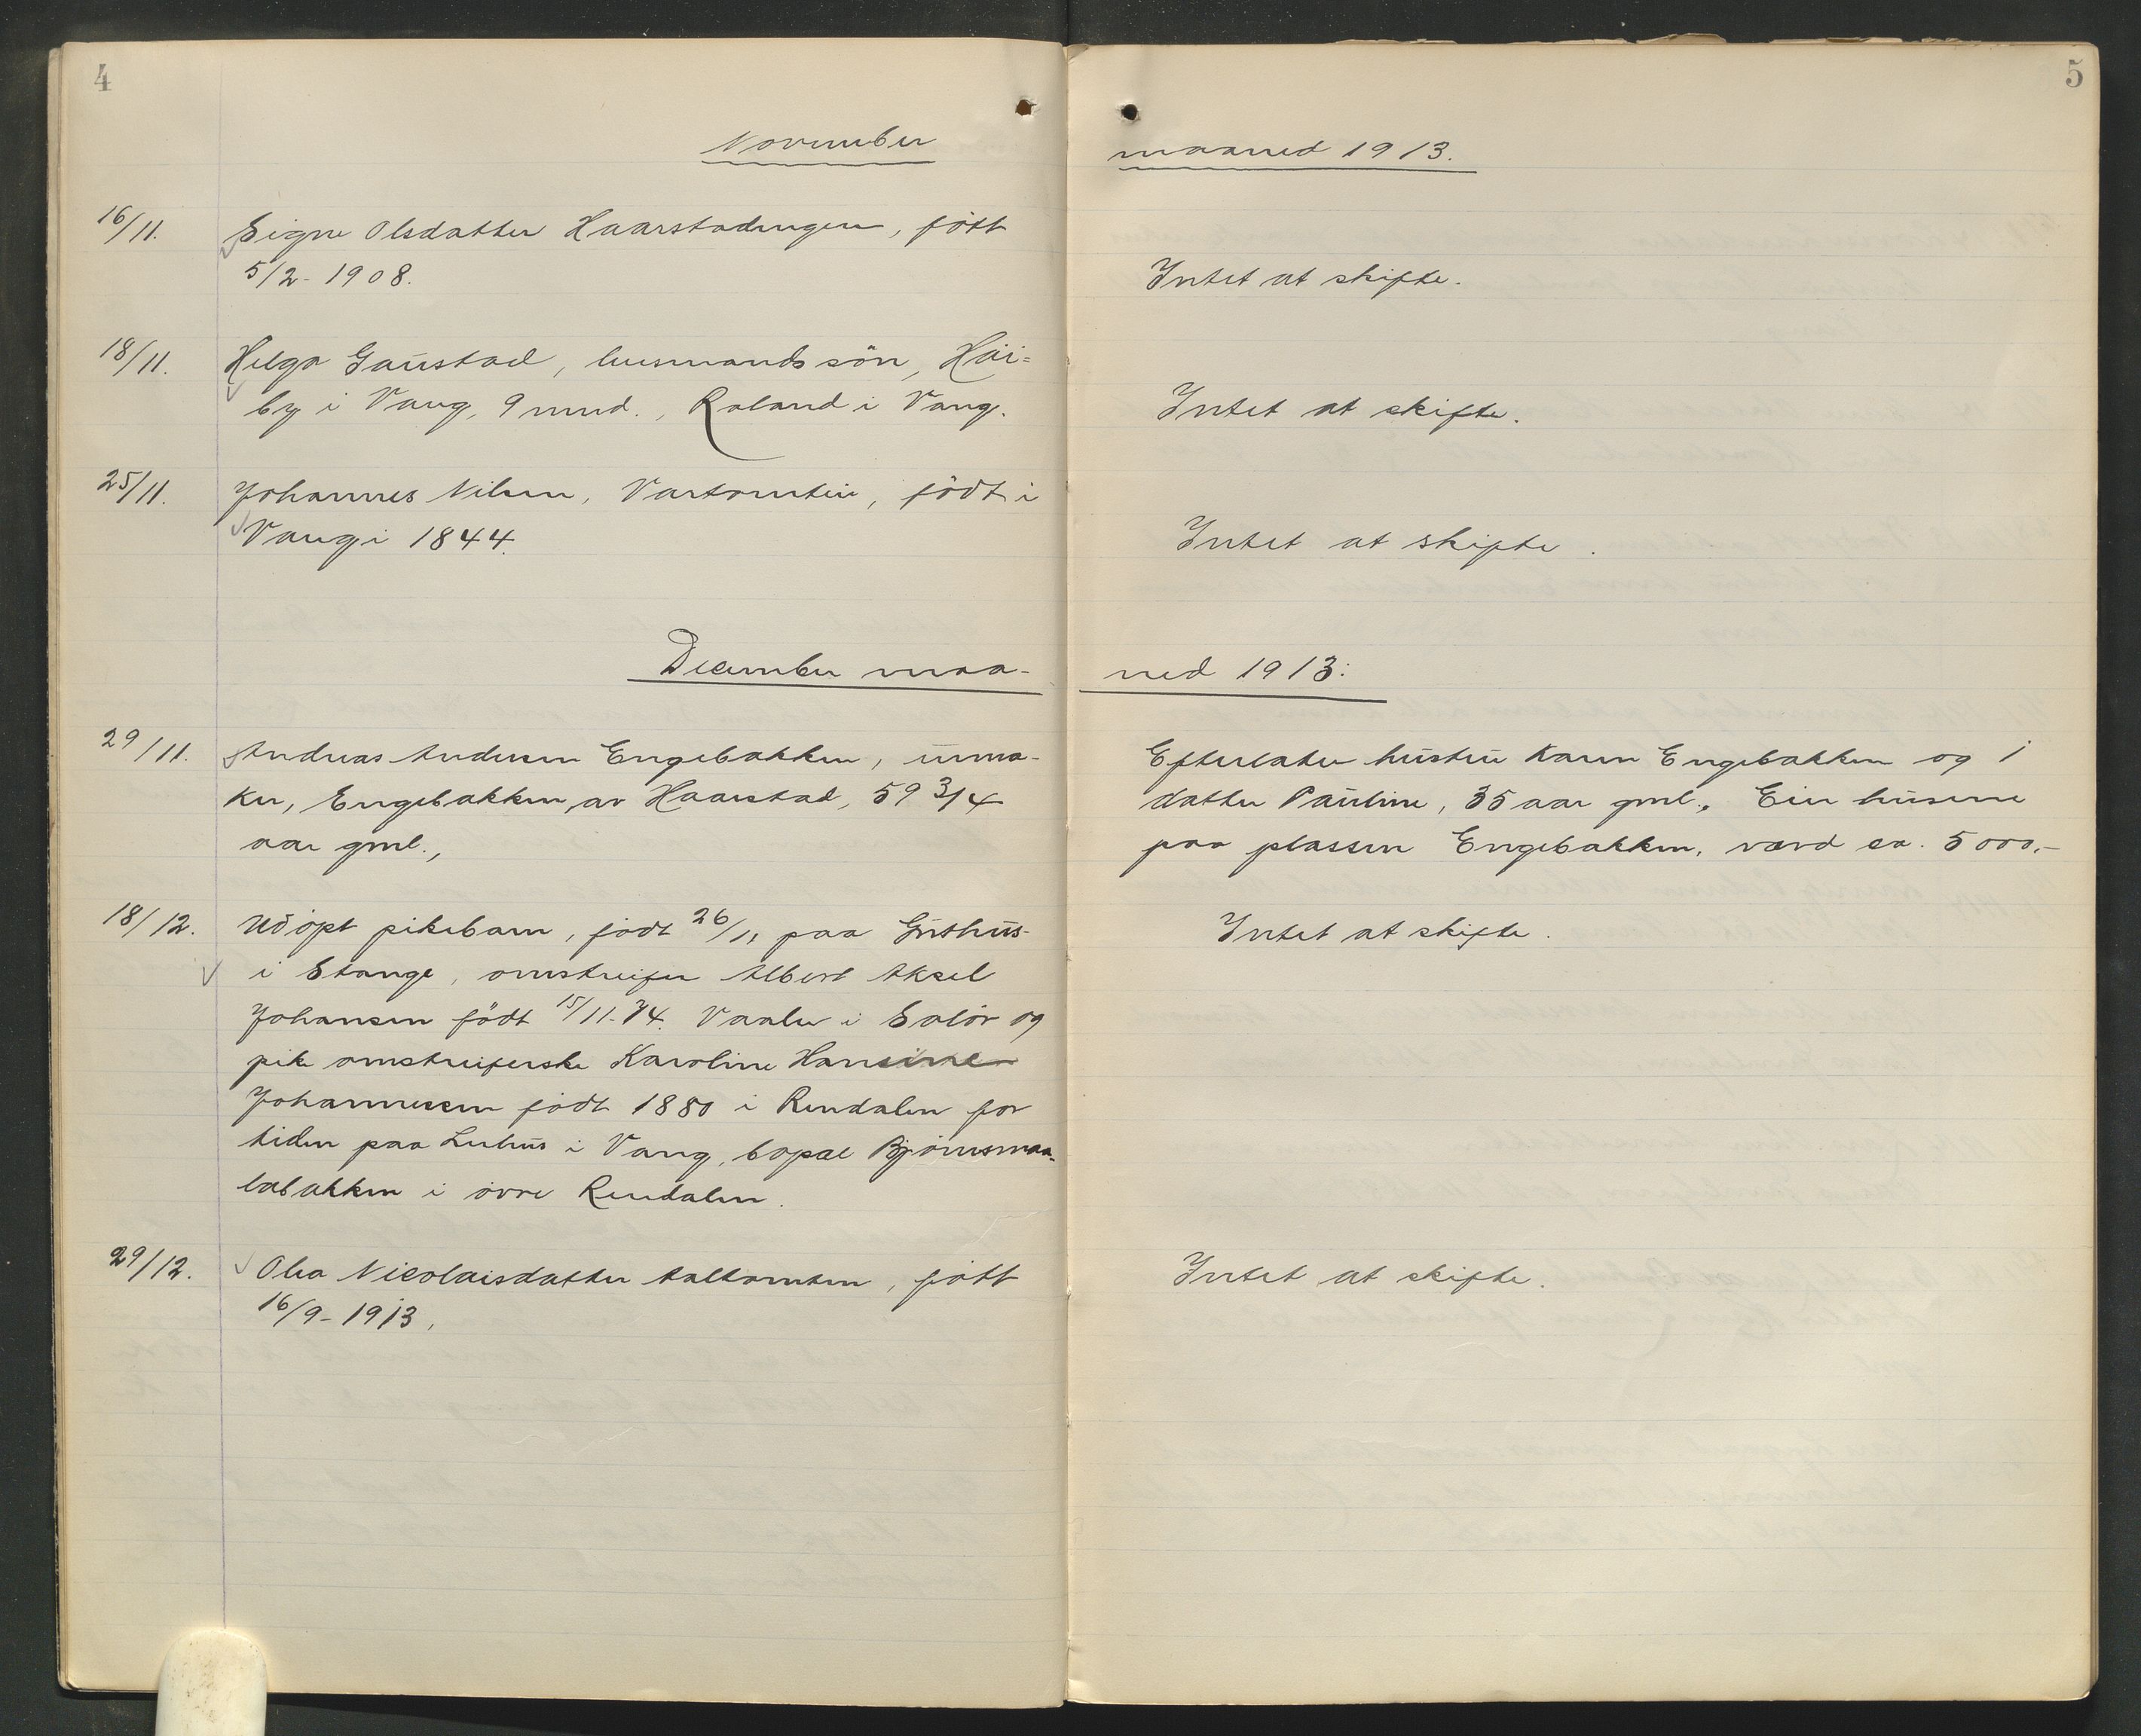 4
November
16/11. Signe Olsdatter Haarstadengen, född
5/2 - 1908.
18/11. Helge Gaustad, husmandssön, Häi-
by i Vang, 9 mnd., Roland i Vang.
25/11. Johannes Nilsen, Vartomten, född i
Vang i 1844.
December maa-
29/11. Andreas Andersen Engebakken, urma-
ker, Engebakken, av Haarstad, 59 3/4
aar gml.,
18/12. Udöpt pikebarn, född 26/11 paa Gusthus
i Stange, omstreifer Albert Aksel
Johansen född 15/11-74. Vaaler i Solör og
pike omstreiferske Karoline Hansine
Johannessen född 1880 i Rendalen for
tiden paa i Vang, bopæl Björnsmaa-
labakken i övre Rendalen.
29/12. Olea Nicolaisdatter , född
16/9 - 1913.
5
maaned 1913.
Intet at skifte.
Intet at skifte.
Intet at skifte.
ned 1913:
Efterlater hustru Karen Engebakken og 1
datter Pauline, 35 aar gml., Eier husene
paa plassen Engebakken, værd ca. 5000,-
Intet at skifte.
Intet at skifte.